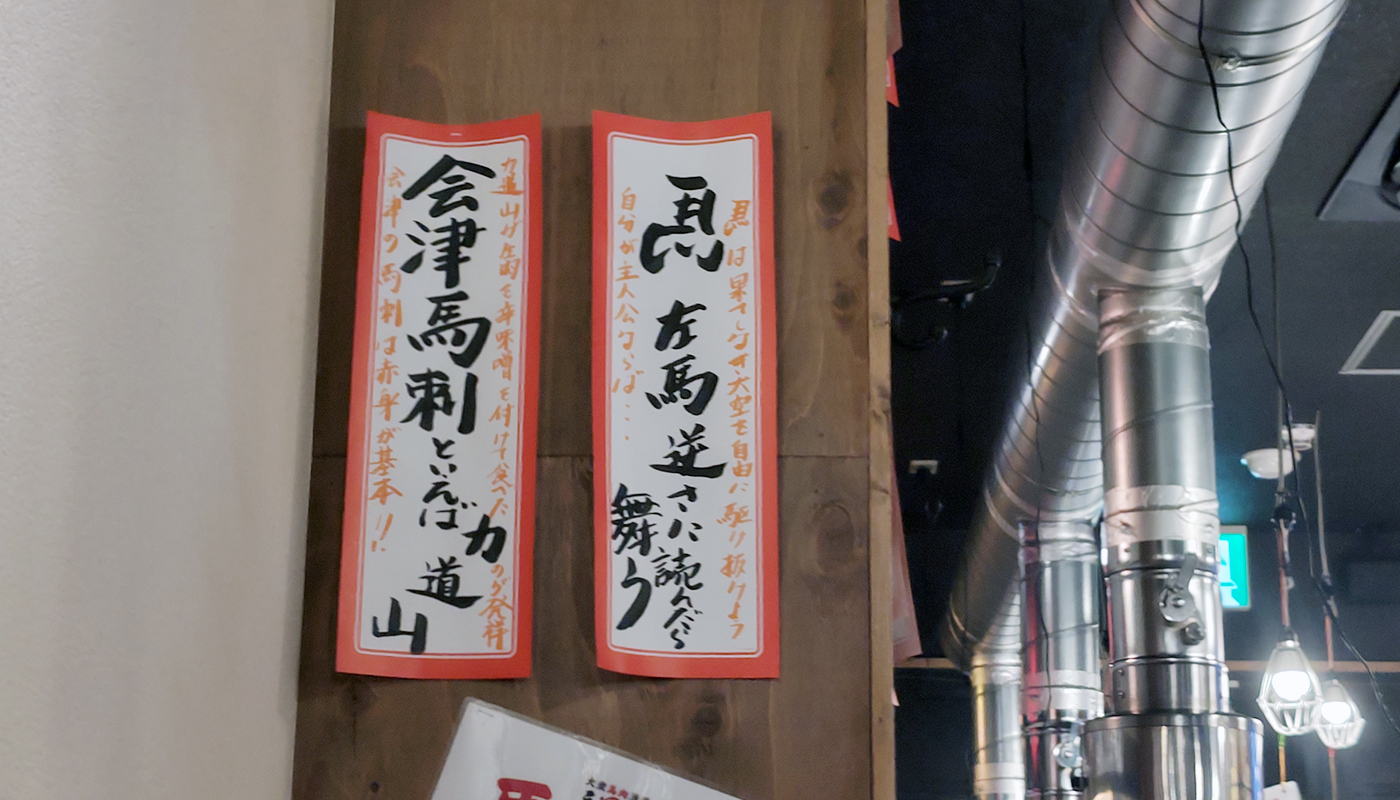 馬は果てしなき大空を自由に駆り抜けよう
馬
左馬
逆さに読んだら
舞う
自分が主人公ならば・・・
力道山が生肉を辛味噌を付けて食べたのが発祥
会津馬刺といえば
力道山
会津の馬刺は赤身が基本!!
大衆馬肉酒